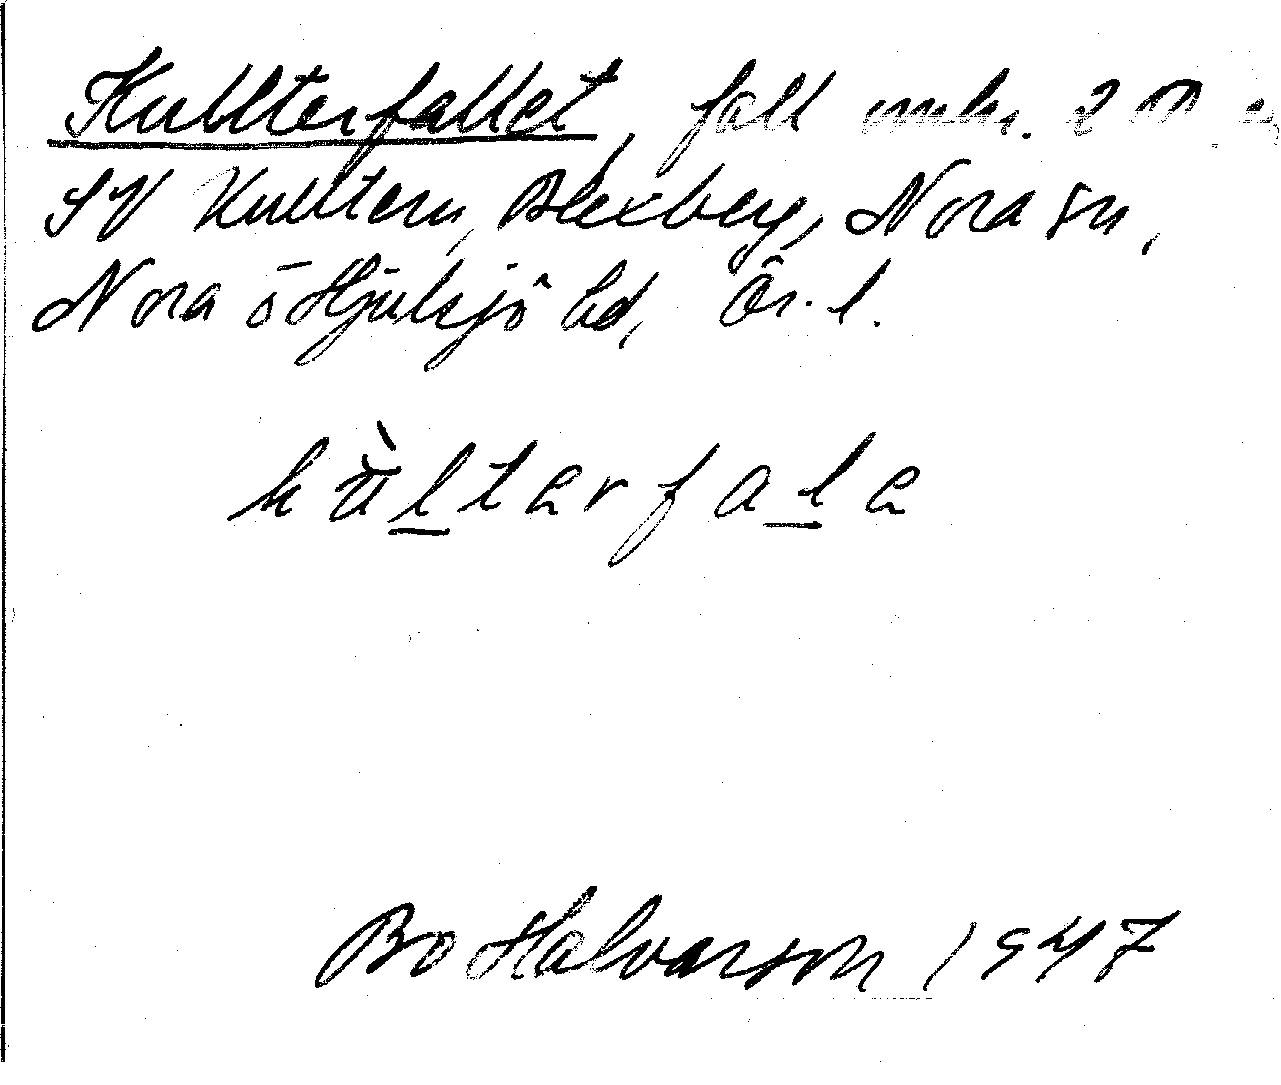 Kullterfallet, fall omkr. 20
SV Kulltern, Blexberg, Nora sn,
Nora ö Hjulsjö bd, Ör. l.
kùlterfale
Bo Halvarson 1947